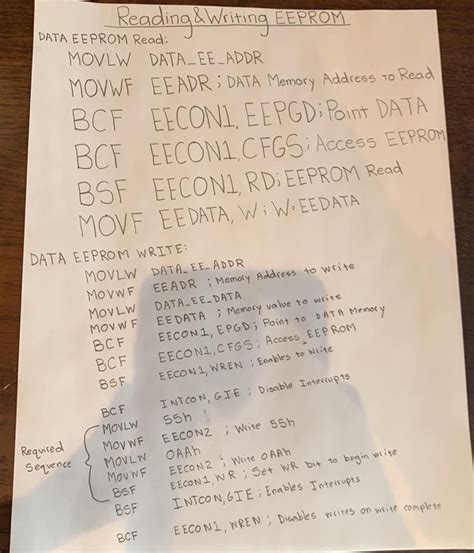 Reading&Writing EEPROM
DATA EEPROM Read:
MOVLW DATA_EE_ADDR
MOVWF EEADR ; DATA Memory Address to Read
BCF EECON1, EEPGD ; Point DATA
BCF EECON1, CFGS ; Access EEPROM
BSF EECON1, RD ; EEPROM Read
MOVF EEDATA, W ; W=EEDATA
DATA EEPROM WRITE:
MOVLW DATA_EE_ADDR
MOVWF EEADR ; Memory Address to write
MOVLW DATA_EE_DATA
MOVWF EEDATA ; Memory value to write
BCF EECON1, EPGD ; Point to DATA Memory
BCF EECON1, CFGS ; Access EEPROM
BSF EECON1, WREN ; Enables to Write
BCF INTCON, GIE ; Disable Interrupts
Required Sequence
MOVLW 55h
MOVWF EECON2 ; Write 55h
MOVLW 0AAh
MOVWF EECON2 ; Write 0AAh
BSF EECON1, WR ; Set WR bit to begin write
BSF INTCON, GIE ; Enables Interrupts
BCF EECON1, WREN ; Disables writes on write complete